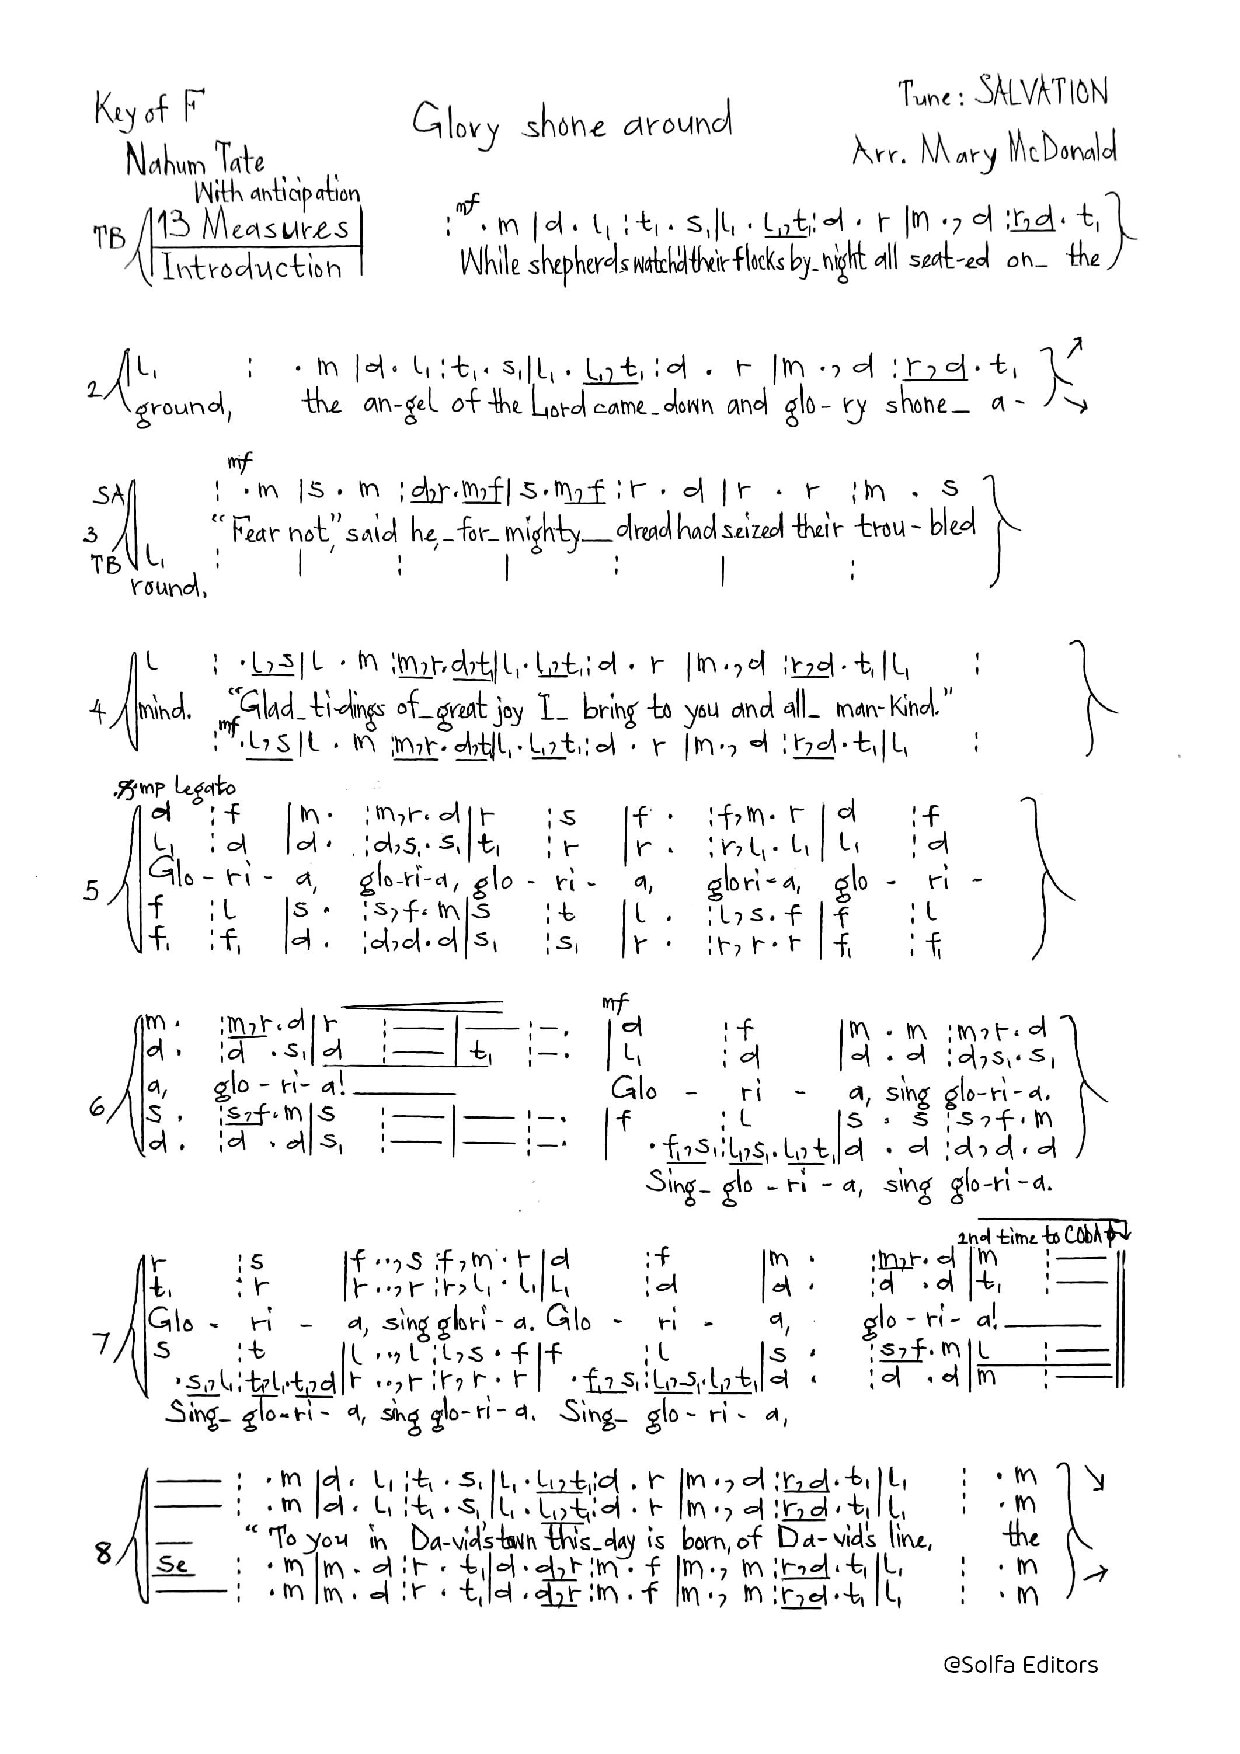 Key of F
Tune: SALVATION
Glory shone around
Nahum Tate
Arr. Mary McDonald
With anticipation
TB 13 Measures
Introduction
mf
: . m |d . l₁ :t₁ . s₁|l₁ . l₁,t₁:d . r |m ., d :r,d . t₁
While shepherds watch'd their flocks by_night all seat-ed on_ the
2 l₁ : . m |d . l₁ :t₁ . s₁|l₁ . l₁,t₁ :d . r |m ., d :r,d . t₁
ground, the an-gel of the Lord came_down and glo-ry shone_ a-
mf
SA : . m |s . m :d,r.m,f|s.m,f :r . d |r . r :m . s
3 "Fear not," said he,_for_mighty__dread had seized their trou-bled
TB l₁ : | : | : | :
round,
l : . l,s|l . m :m,r.d,t₁|l₁.l₁,t₁:d . r |m ., d :r,d . t₁|l₁ :
4 mind. "Glad_ti-dings of_great joy I_ bring to you and all_ man-kind."
mf
: . l,s|l . m :m,r.d,t₁|l₁.l₁,t₁:d . r |m ., d :r,d . t₁|l₁ :
mp legato
d :f |m . :m,r.d|r :s |f . :f,m.r |d :f
l₁ :d |d . :d,s₁.s₁|t₁ :r |r . :r,l₁.l₁|l₁ :d
5 Glo-ri-a, glo-ri-a, glo-ri-a, glori-a, glo-ri-
f :l |s . :s,f.m|s :t |l . :l,s.f |f :l
f₁ :f₁ |d . :d,d.d|s₁ :s₁ |r . :r,r.r |f₁ :f₁
mf
m . :m,r.d|r :— |— :—. |d :f |m . m :m,r.d
d . :d .s₁|d :— |t₁ :—. |l₁ :d |d . d :d,s₁.s₁
a, glo-ri-a!____ Glo - ri - a, sing glo-ri-a.
6 s . :s,f.m|s :— |— :—. |f :l |s . s :s,f.m
d . :d . d|s₁ :— |— :—. | . f₁,s₁:l₁,s₁.l₁,t₁|d . d :d,d.d
Sing_ glo-ri-a, sing glo-ri-a.
2nd time to CODA
r :s |f ..,s :f,m.r|d :f |m . :m,r.d|m :—
t₁ :r |r ..,r :r,l₁.l₁|l₁ :d |d . :d .d|t₁ :—
Glo - ri - a, sing glori-a. Glo - ri - a, glo-ri-a!____
7 s :t |l ..,l :l,s.f|f :l |s . :s,f.m|l :—
. s₁,l₁:t₁,l₁.t₁,d|r ..,r :r,r.r| . f₁,s₁:l₁,s₁.l₁,t₁|d . :d .d|m :—
Sing_ glo-ri-a, sing glo-ri-a. Sing_ glo-ri-a,
— : . m |d . l₁ :t₁ . s₁|l₁ . l₁,t₁:d . r |m ., d :r,d . t₁|l₁ : . m
— : . m |d . l₁ :t₁ . s₁|l₁ . l₁,t₁:d . r |m ., d :r,d . t₁|l₁ : . m
"To you in Da-vid's town this_day is born, of Da-vid's line, the
8 se : . m |m . d :r . t₁|d . d,r :m . f |m ., m :r,d . t₁|l₁ : . m
— : . m |m . d :r . t₁|d . d,r :m . f |m ., m :r,d . t₁|l₁ : . m
@Solfa Editors